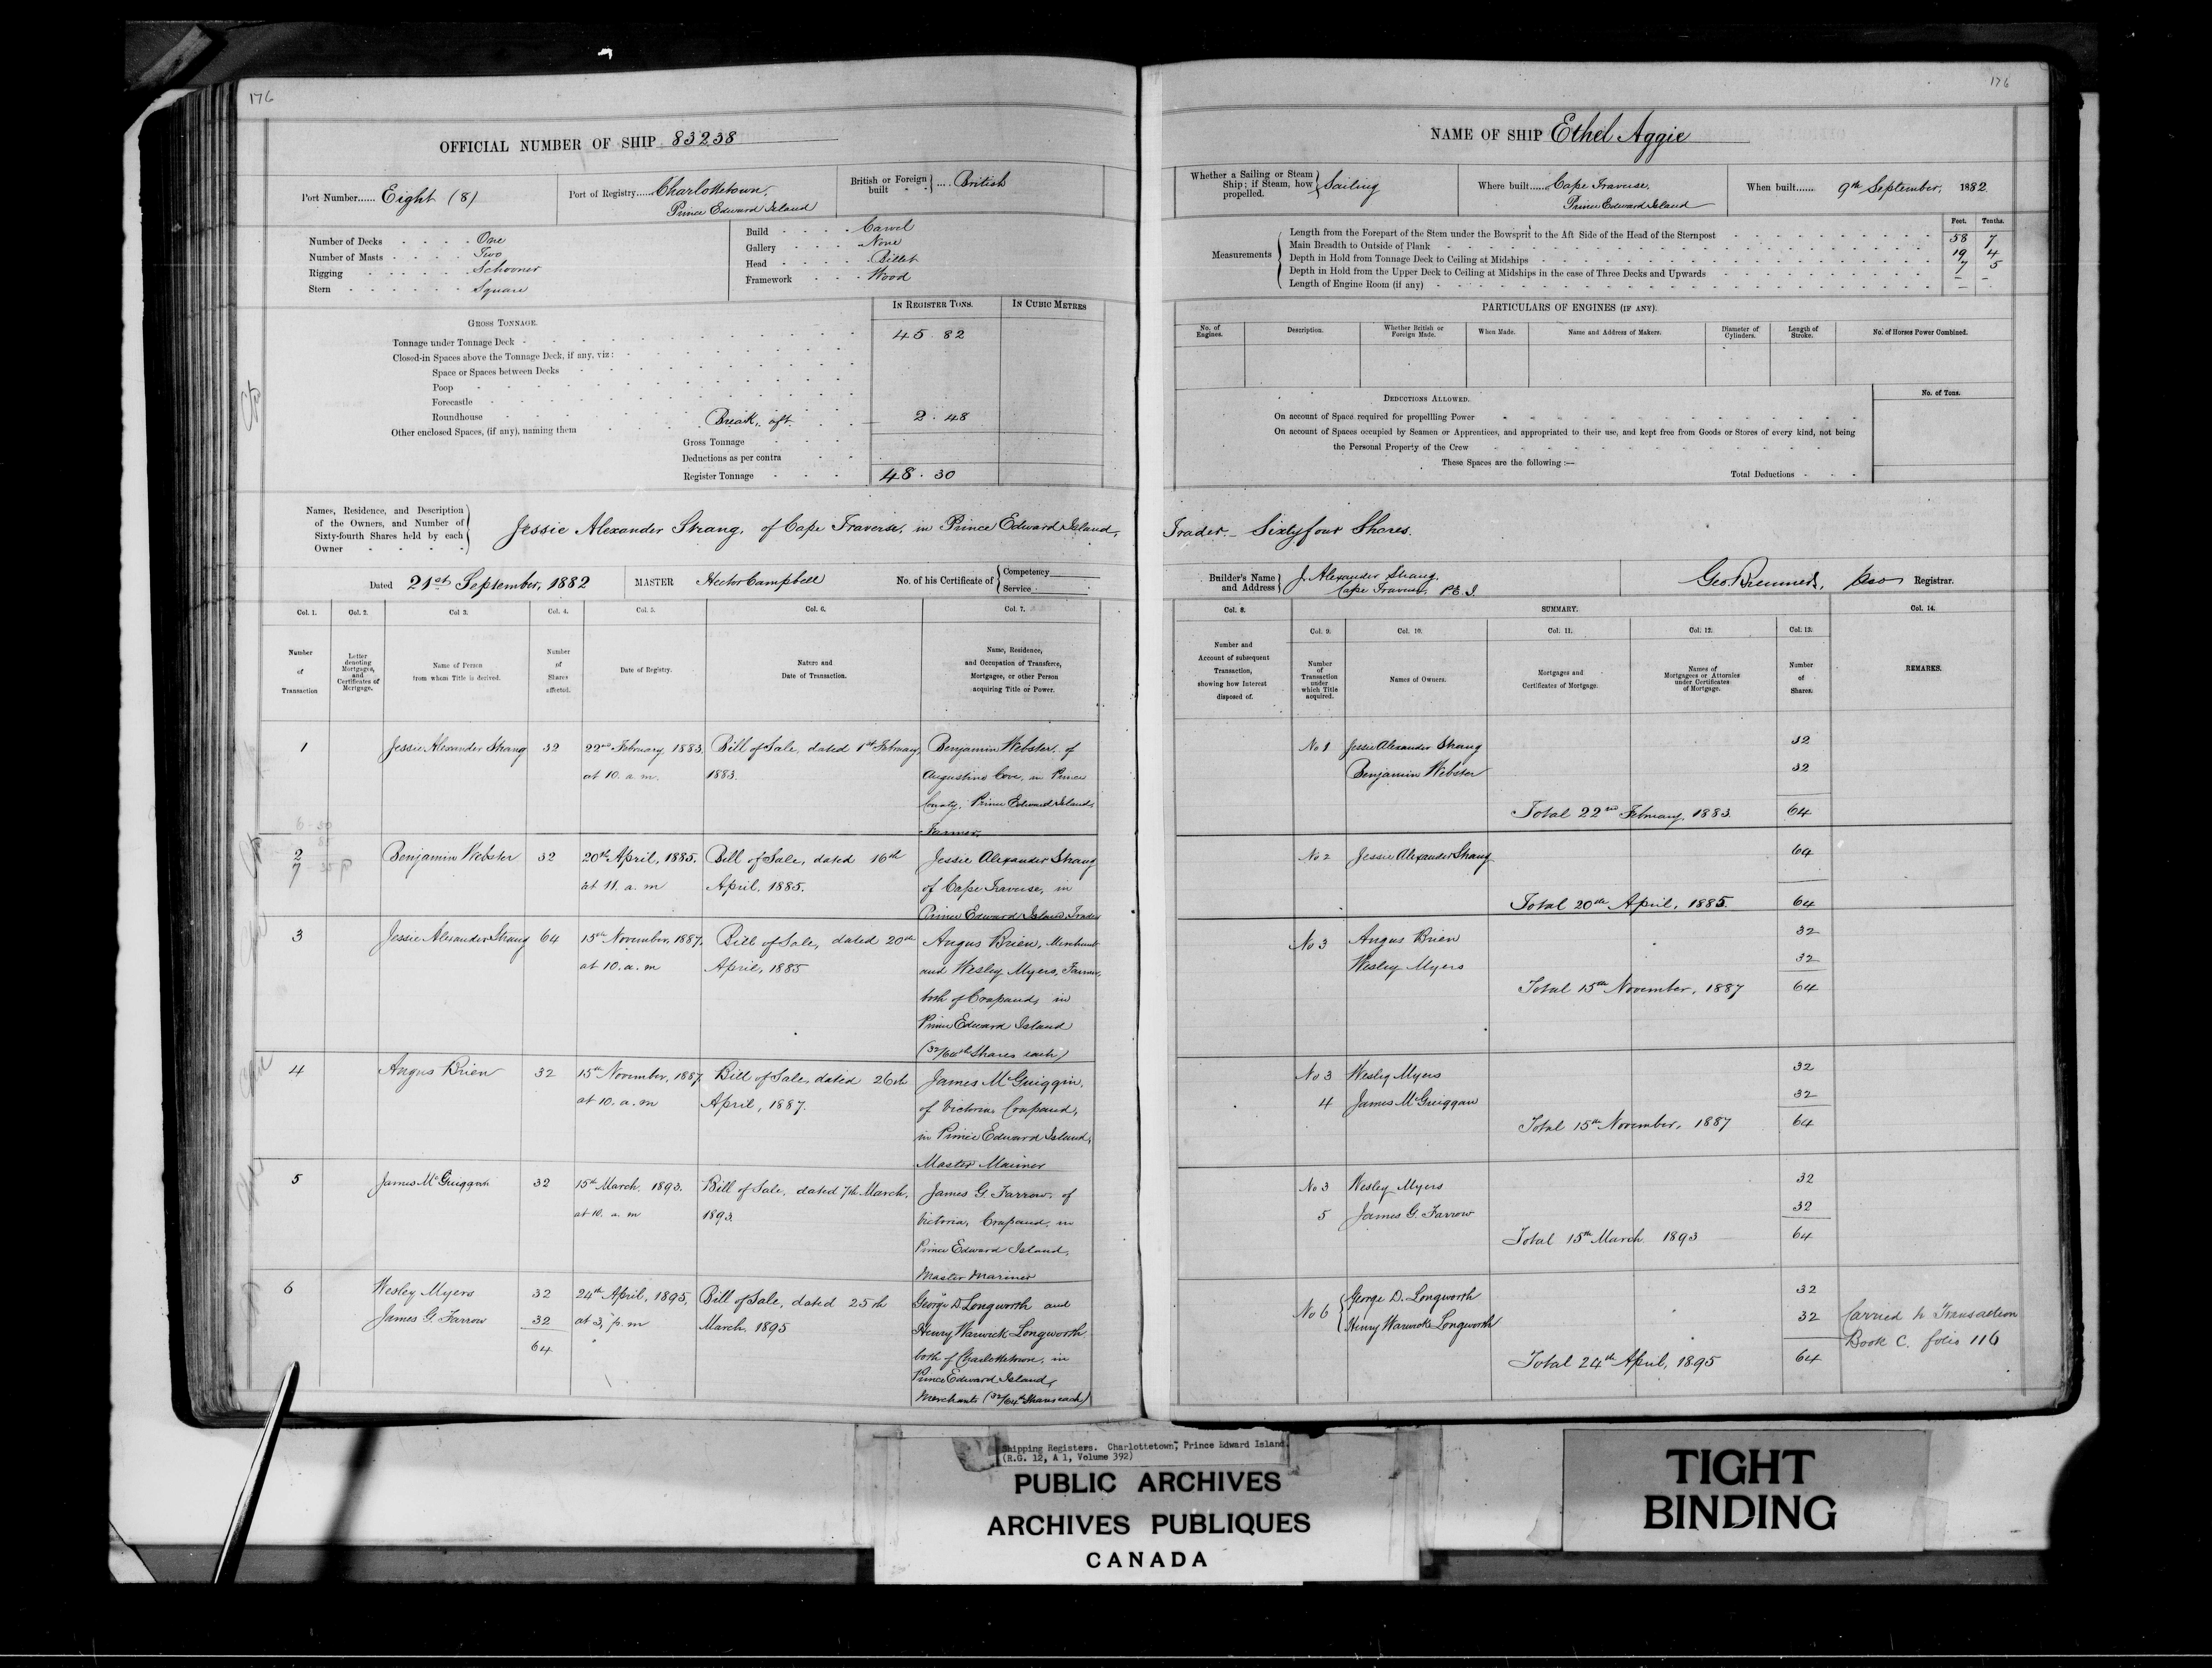 176
OFFICIAL NUMBER OF SHIP 83238
Port Number...... Eight (8)
Port of Registry...... Charlottetown,
Prince Edward Island
British or Foreign built } .... British
Number of Decks One
Number of Masts Two
Rigging Schooner
Stern Square
Build Carvel
Gallery None
Head Billet
Framework Wood
IN REGISTER TONS.
IN CUBIC METRES
GROSS TONNAGE.
Tonnage under Tonnage Deck 45.82
Closed-in Spaces above the Tonnage Deck, if any, viz:
Space or Spaces between Decks
Poop
Forecastle
Roundhouse
Other enclosed Spaces, (if any), naming them Break, aft 2.48
Gross Tonnage
Deductions as per contra
Register Tonnage 48.30
Names, Residence, and Description
of the Owners, and Number of
Sixty-fourth Shares held by each
Owner
Jessie Alexander Strang, of Cape Traverse, in Prince Edward Island,
Dated 21st September, 1882
MASTER Hector Campbell
No. of his Certificate of { Competency
Service
Col. 1. Col. 2. Col 3. Col. 4. Col. 5. Col. 6. Col. 7.
Number of Transaction
Letter denoting Mortgages, and Certificates of Mortgage.
Name of Person from whom Title is derived.
Number of Shares affected.
Date of Registry.
Nature and Date of Transaction.
Name, Residence, and Occupation of Transferee, Mortgagee, or other Person acquiring Title or Power.
1 Jessie Alexander Strang 32 22nd February, 1883. Bill of Sale, dated 1st February, Benjamin Webster, of
at 10. a. m. 1883. Augustine Cove, in Prince
County, Prince Edward Island,
Farmer.
2 Benjamin Webster 32 20th April, 1885. Bill of Sale, dated 16th Jessie Alexander Strang
7 at 11. a. m April, 1885. of Cape Traverse, in
Prince Edward Island, Trader
3 Jessie Alexander Strang 64 15th November, 1887. Bill of Sale, dated 20th Angus Brien, Merchant
at 10. a. m April, 1885 and Wesley Myers, Farmer,
both of Crapaud, in
Prince Edward Island
(32/64th Shares each)
4 Angus Brien 32 15th November, 1887 Bill of Sale, dated 26th James McGuiggin,
at 10. a. m April, 1887. of Victoria, Crapaud,
in Prince Edward Island,
Master Mariner
5 James McGuiggan 32 15th March, 1893. Bill of Sale, dated 7th March, James G. Farrow, of
at 10. a. m 1893. Victoria, Crapaud, in
Prince Edward Island,
Master Mariner
6 Wesley Myers 32 24th April, 1895, Bill of Sale, dated 25th George D. Longworth and
James G. Farrow 32 at 3, p. m March, 1895 Henry Warwick Longworth
64 both of Charlottetown, in
Prince Edward Island,
Merchants (32/64th Shares each)
176
NAME OF SHIP Ethel Aggie
Whether a Sailing or Steam
Ship; if Steam, how
propelled. } Sailing
Where built...... Cape Traverse,
Prince Edward Island
When built...... 9th September, 1882
Feet. Tenths.
Measurements
Length from the Forepart of the Stem under the Bowsprit to the Aft Side of the Head of the Sternpost 58 7
Main Breadth to Outside of Plank 19 4
Depth in Hold from Tonnage Deck to Ceiling at Midships 7 5
Depth in Hold from the Upper Deck to Ceiling at Midships in the case of Three Decks and Upwards – –
Length of Engine Room (if any) –
PARTICULARS OF ENGINES (IF ANY).
No. of Engines.
Description.
Whether British or Foreign Made.
When Made.
Name and Address of Makers.
Diameter of Cylinders.
Length of Stroke.
No. of Horses Power Combined.
DEDUCTIONS ALLOWED.
No. of Tons.
On account of Space required for propellling Power
On account of Spaces occupied by Seamen or Apprentices, and appropriated to their use, and kept free from Goods or Stores of every kind, not being
the Personal Property of the Crew
These Spaces are the following :—
Total Deductions
Trader. Sixtyfour Shares.
Builder's Name
and Address } J. Alexander Strang,
Cape Traverse, P.E.I.
Registrar.
Col. 8. SUMMARY. Col. 14.
Col. 9. Col. 10. Col. 11. Col. 12. Col. 13.
Number and Account of subsequent Transaction, showing how Interest disposed of.
Number of Transaction under which Title acquired.
Names of Owners.
Mortgages and Certificates of Mortgage.
Names of Mortgagees or Attornies under Certificates of Mortgage.
Number of Shares.
REMARKS.
No 1 Jessie Alexander Strang 32
Benjamin Webster 32
Total 22nd February 1883. 64
No 2 Jessie Alexander Strang 64
Total 20th April, 1885. 64
No 3 Angus Brien 32
Wesley Myers 32
Total 15th November, 1887 64
No 3 Wesley Myers 32
4 James McGuiggan 32
Total 15th November, 1887 64
No 3 Wesley Myers 32
5 James G. Farrow 32
Total 15th March 1893 64
No 6 { George D. Longworth 32
Henry Warwick Longworth 32
Total 24th April, 1895 64
Carried to Transaction
Book C. folio 116
Shipping Registers. Charlottetown, Prince Edward Island.
(R.G. 12, A 1, Volume 392)
PUBLIC ARCHIVES
ARCHIVES PUBLIQUES
CANADA
TIGHT
BINDING